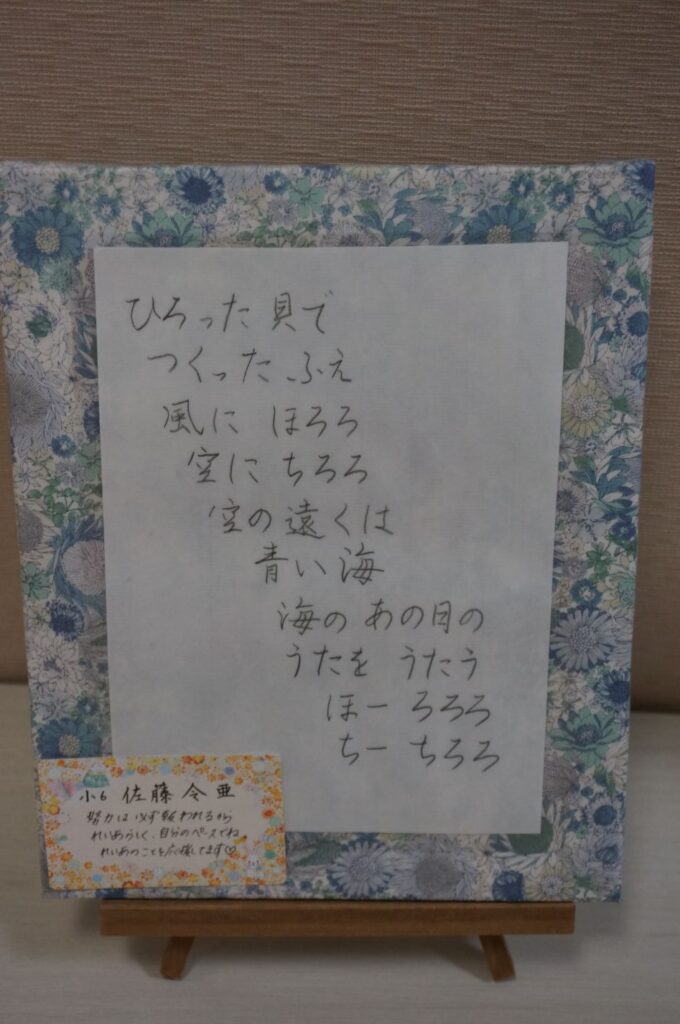 ひろった 貝で
つくった ふえ
風に ほろろ
空に ちろろ
空の遠くは
青い海
海の あの日の
うたを うたう
ほー ろろろ
ちー ちろろ
小6 佐藤令亜
努力は必ず報われるから
れいあらしく、自分のペースでね。
れいあのことを応援してます♡